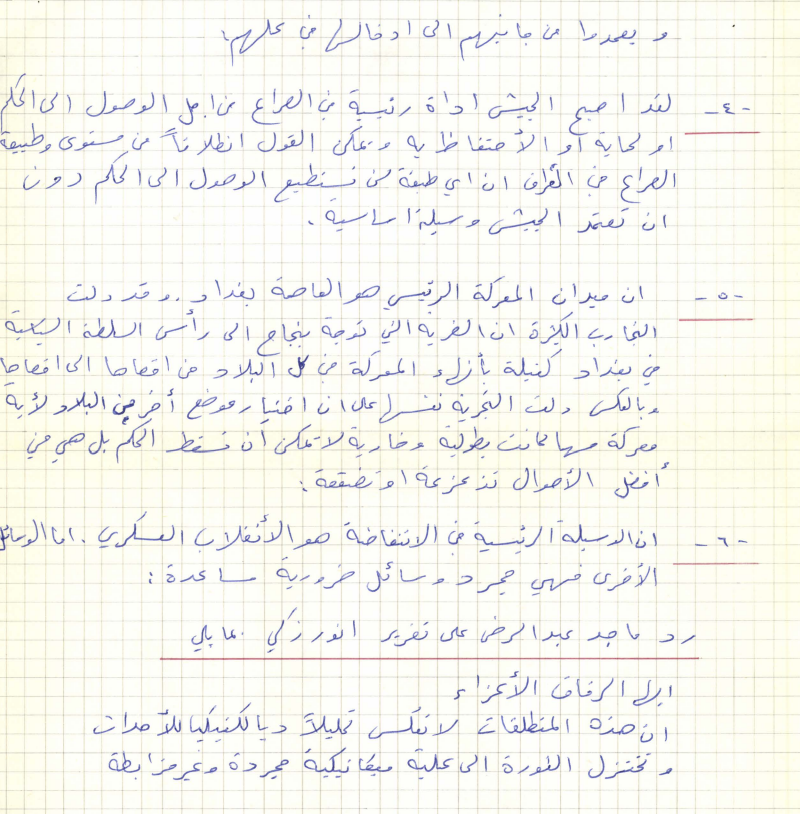 و يعمدوا من جانبهم الى ادخالها في عملهم.
-٤- لقد اصبح الجيش اداة رئيسية في الصراع من اجل الوصول الى الحكم
او لحماية او الأحتفاظ به ويمكن القول انطلاقاً من مستوى وطبيعة
الصراع في العراق ان اي طبقة لن تستطيع الوصول الى الحكم دون
ان تعتمد الجيش وسيلة اساسية.
-٥- ان ميدان المعركة الرئيسي هو العاصمة بغداد. وقد دلت
التجارب الكثيرة ان الضربة التي توجه بنجاح الى رأس السلطة السياسية
في بغداد كفيلة بأنهاء المعركة في كل البلاد من اقصاها الى اقصاها
وبالعكس دلت التجربة نفسها على ان اختيار موضع أخر من البلاد لأية
معركة مهما كانت بطولية وضارية لا يمكن أن تسقط الحكم بل هي في
أفضل الأحوال تزعزعة او تضعفه.
-٦- ان الوسيلة الرئيسية في الانتفاضة هو الأنقلاب العسكري. اما الوسائل
الأخرى فهي مجرد وسائل ضرورية مساعدة:
رد ماجد عبد الرضى على تقرير انور زكي بما يلي
ايها الرفاق الأعزاء
ان هذه المنطلقات لا تعكس تحليلاً ديالكتيكيا للأحداث
وتختزل الثورة الى عملية ميكانيكية مجردة وغير مترابطة